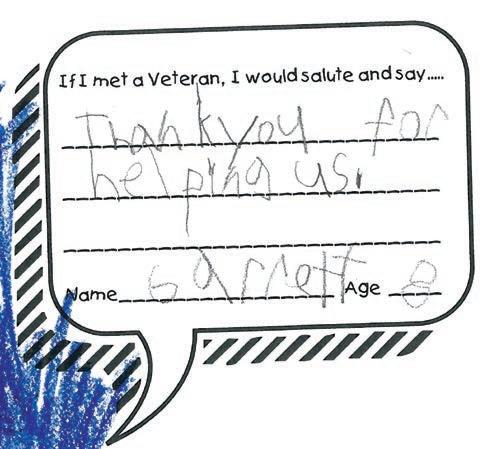 If I met a Veteran, I would salute and say.....
Thank you for
helping us.
Name Garrett Age 8